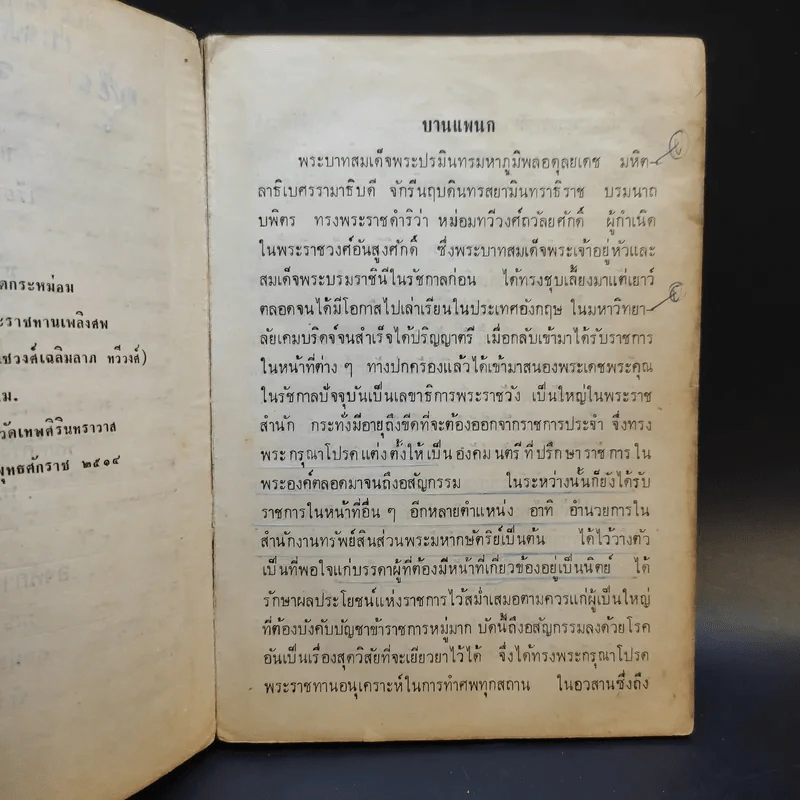 ดกระหม่อม
ะราชทานเพลิงศพ
ชวงศ์เฉลิมลาภ ทวีวงศ์)
ม.
วัดเทพศิรินทราวาส
พุทธศักราช ๒๕๑๔
บานแพนก
พระบาทสมเด็จพระปรมินทรมหาภูมิพลอดุลยเดช มหิต
ลาธิเบศรรามาธิบดี จักรีนฤบดินทรสยามินทราธิราช บรมนาถ
บพิตร ทรงพระราชดำริว่า หม่อมทวีวงศ์ถวัลยศักดิ์ ผู้กำเนิด
ในพระราชวงศ์อันสูงศักดิ์ ซึ่งพระบาทสมเด็จพระเจ้าอยู่หัวและ
สมเด็จพระบรมราชินีในรัชกาลก่อน ได้ทรงชุบเลี้ยงมาแต่เยาว์
ตลอดจนได้มีโอกาสไปเล่าเรียนในประเทศอังกฤษ ในมหาวิทยา
ลัยเคมบริดจ์จนสำเร็จได้ปริญญาตรี เมื่อกลับเข้ามาได้รับราชการ
ในหน้าที่ต่าง ๆ ทางปกครองแล้วได้เข้ามาสนองพระเดชพระคุณ
ในรัชกาลปัจจุบันเป็นเลขาธิการพระราชวัง เป็นใหญ่ในพระราช
สำนัก กระทั่งมีอายุถึงขีดที่จะต้องออกจากราชการประจำ จึงทรง
พระกรุณาโปรดแต่งตั้งให้เป็นองคมนตรีที่ปรึกษาราชการใน
พระองค์ตลอดมาจนถึงอสัญกรรม ในระหว่างนั้นก็ยังได้รับ
ราชการในหน้าที่อื่น ๆ อีกหลายตำแหน่ง อาทิ อำนวยการใน
สำนักงานทรัพย์สินส่วนพระมหากษัตริย์เป็นต้น ได้ไว้วางตัว
เป็นที่พอใจแก่บรรดาผู้ที่ต้องมีหน้าที่เกี่ยวข้องอยู่เป็นนิตย์ ได้
รักษาผลประโยชน์แห่งราชการไว้สม่ำเสมอตามควรแก่ผู้เป็นใหญ่
ที่ต้องบังคับบัญชาข้าราชการหมู่มาก บัดนี้ถึงอสัญกรรมลงด้วยโรค
อันเป็นเรื่องสุดวิสัยที่จะเยียวยาไว้ได้ จึงได้ทรงพระกรุณาโปรด
พระราชทานอนุเคราะห์ในการทำศพทุกสถาน ในอวสานซึ่งถึง